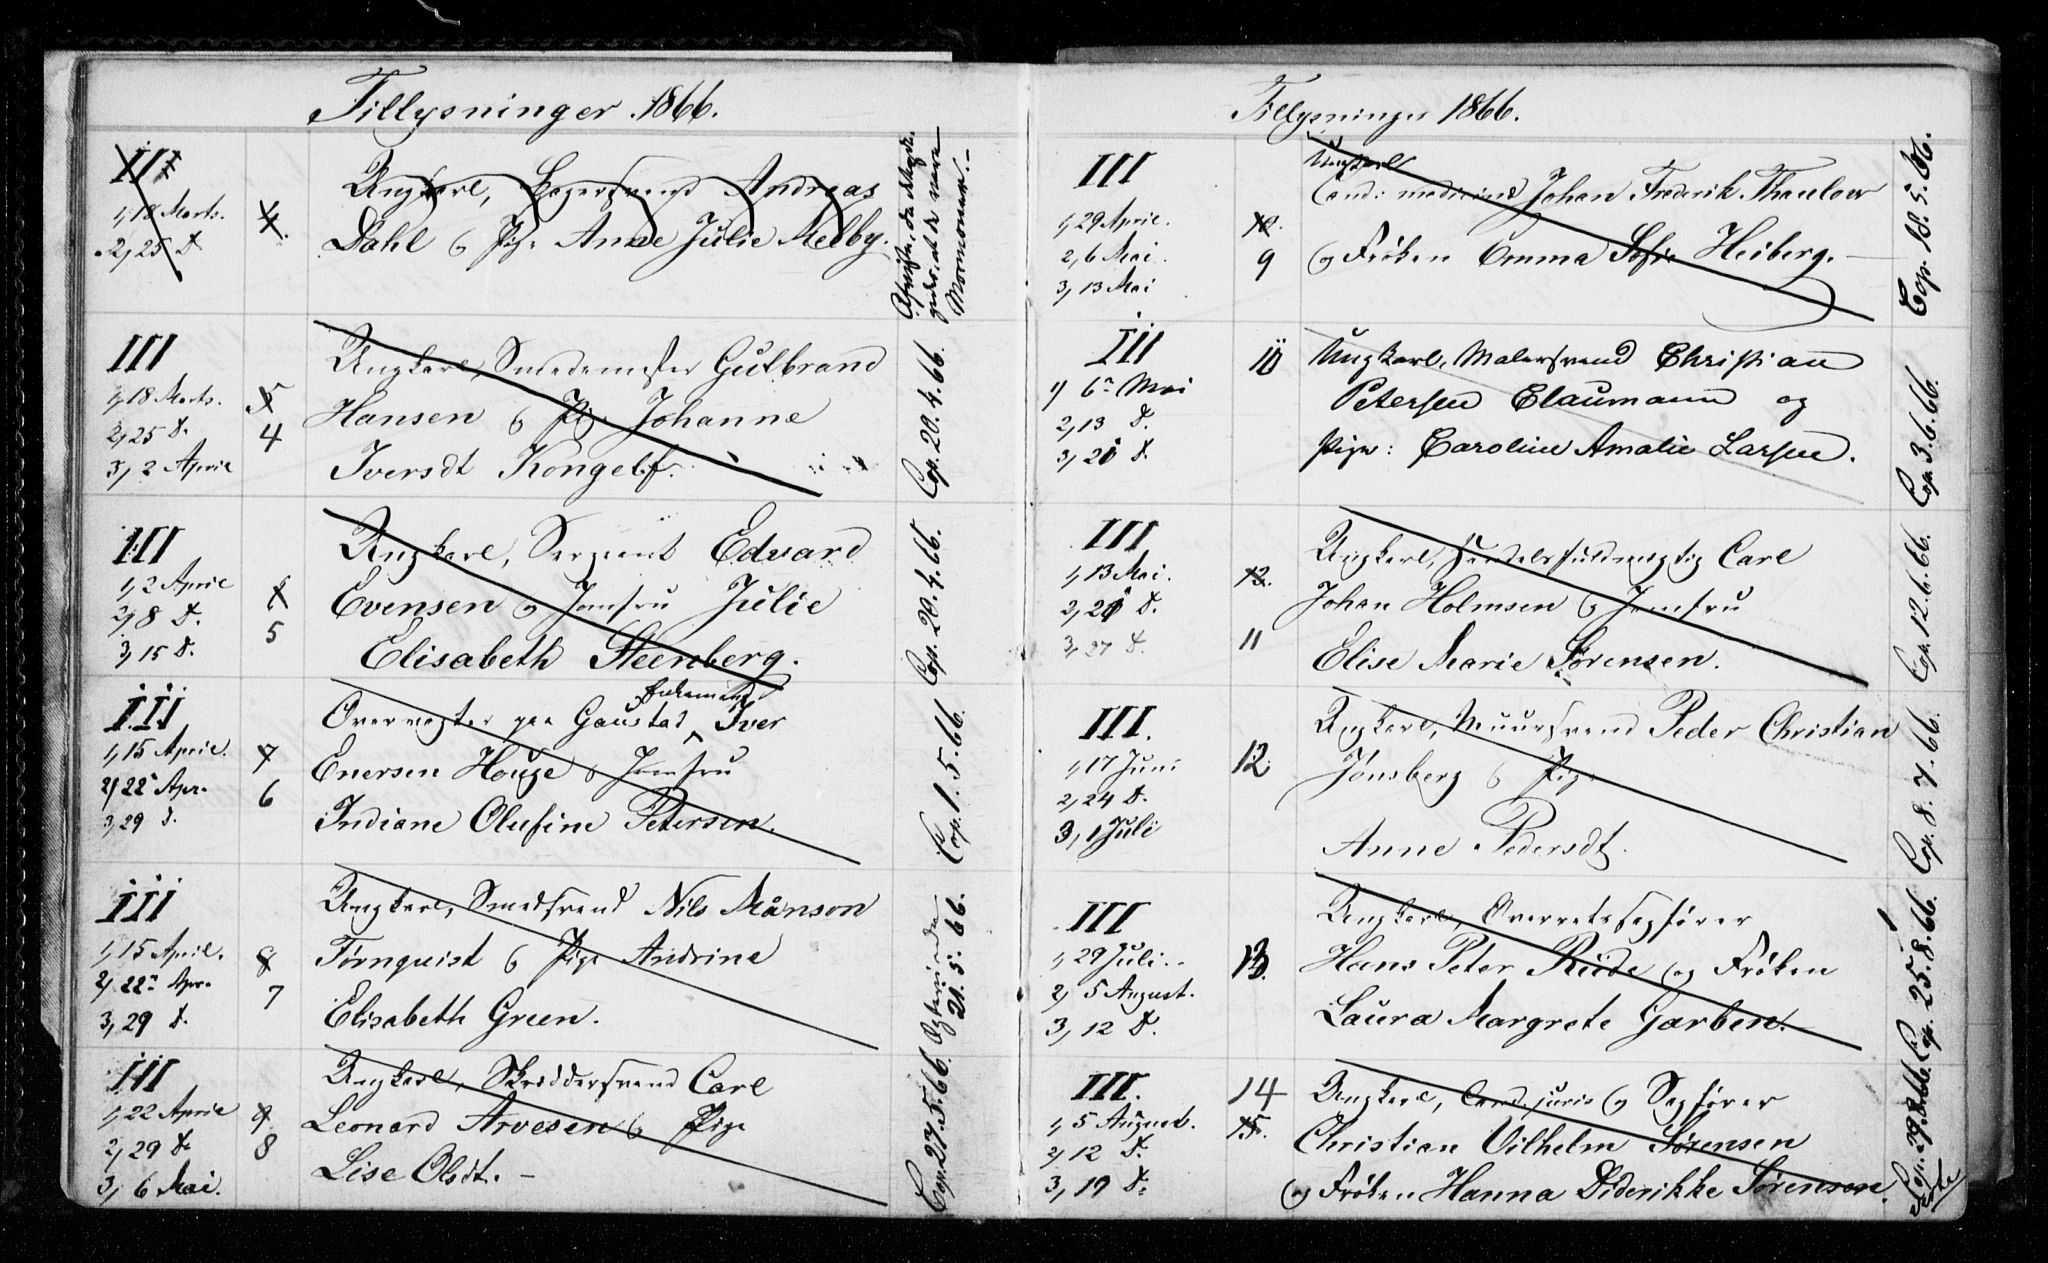 Tillysninger 1866.
III
1, 18 Marts.
2, 25 D.
4.
Ungkarl, Bagersvend Andreas
Dahl & Pige Anne Julie Melby.
Mormoner.
III
1, 18 Marts.
2, 25 D.
3, 2 April
5
4
Ungkarl, Smedemester Gulbrand
Hansen & Pige Johanne
Iversdt Kongelf.
Cop. 20.4.66.
III
1, 2 April
2, 8 D.
3, 15 D.
6
5
Ungkarl, Sergeant Edvard
Evensen & Jomfru Julie
Elisabeth Steenberg.
Cop. 20.4.66.
III
1, 15 April.
2, 22de Apr.
3, 29 D.
7
6
Enkemand
Overvogter paa Gaustad Iver
Enersen Houge & Jomfru
Indiane Olufine Petersen.
Cop. 1.5.66.
III
1, 15 April.
2, 22de Apr.
3, 29 D.
8
7
Ungkarl, Smedsvend Nils Månson
Törnquist & Pige Andrine
Elisabeth Green.
21.5.66.
III
1, 22 April
2, 29 D.
3, 6 Mai.
9
8
Ungkarl, Skreddersvend Carl
Leonard Arvesen & Pige
Lise Olsdt. –
Cop. 27.5.66.
Tillysninger 1866.
III
1, 29 April.
2, 6 Mai.
3, 13 Mai
10.
9
Ungkarl
Cand: medicine Johan Fredrik Thaulow
og Frøken Emma Sofie Heiberg. –
Cop. 18.5.66.
III
1) 6te Mai
2, 13 D.
3, 20 D.
10
Ungkarl, Malersvend Christian
Petersen Claumann og
Pige: Caroline Amalie Larsen.
Cop. 3.6.66.
III
1, 13 Mai.
2, 20 D.
3, 27 D.
12.
11
Ungkarl, Handelsfuldmegtig Carl
Johan Holmsen & Jomfru
Elise Marie Sørensen.
Cop. 12.6.66.
III.
1, 17 Juni
2, 24 D.
3, 1 Juli
12
Ungkarl, Muursvend Peder Christian
Jønsberg & Pige
Anne Pedersdt.
Cop. 8.7.66.
III
1, 29 Juli.
2, 5 August.
3, 12 D.
13.
Ungkarl, Overretssagfører
Hans Peter Rude og Frøken
Laura Margrete Garben.
Cop. 25.8.66.
III.
1, 5 August.
2, 12 D.
3, 19 D.
14
15.
Ungkarl, Cand. juris & Sagfører
Christian Vilhelm Sørensen
og Frøken Hanna Diderikke Sørensen.
Cop. 29.8.66.